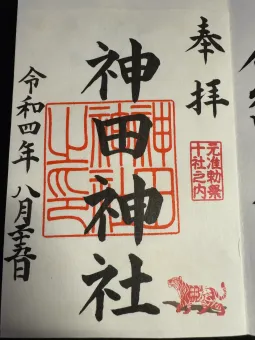 奉拝
元准勅祭
十社之内
神田神社
神田
神社
之印
令和四年 八月 日